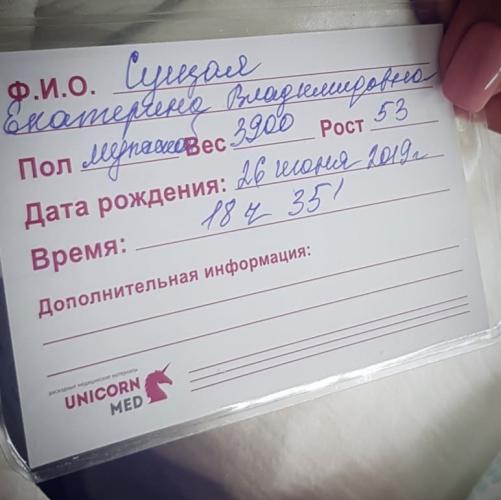 Ф.И.О. Сущая
Екатерина Владимировна
Пол мужской Вес 3900 Рост 53
Дата рождения: 26 июня 2019г
Время: 18 ч 35'
Дополнительная информация:
расходные медицинские материалы
UNICORN
MED